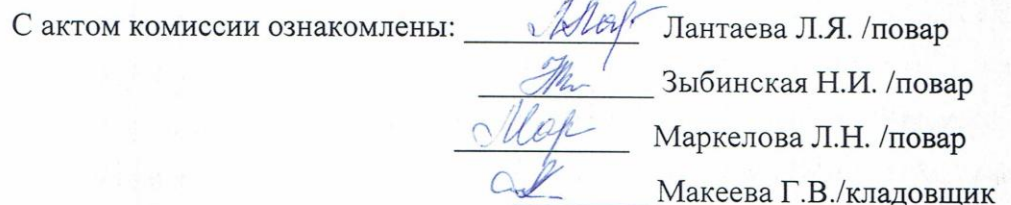 С актом комиссии ознакомлены: Лантаева Л.Я. /повар
Зыбинская Н.И. /повар
Маркелова Л.Н. /повар
Макеева Г.В./кладовщик